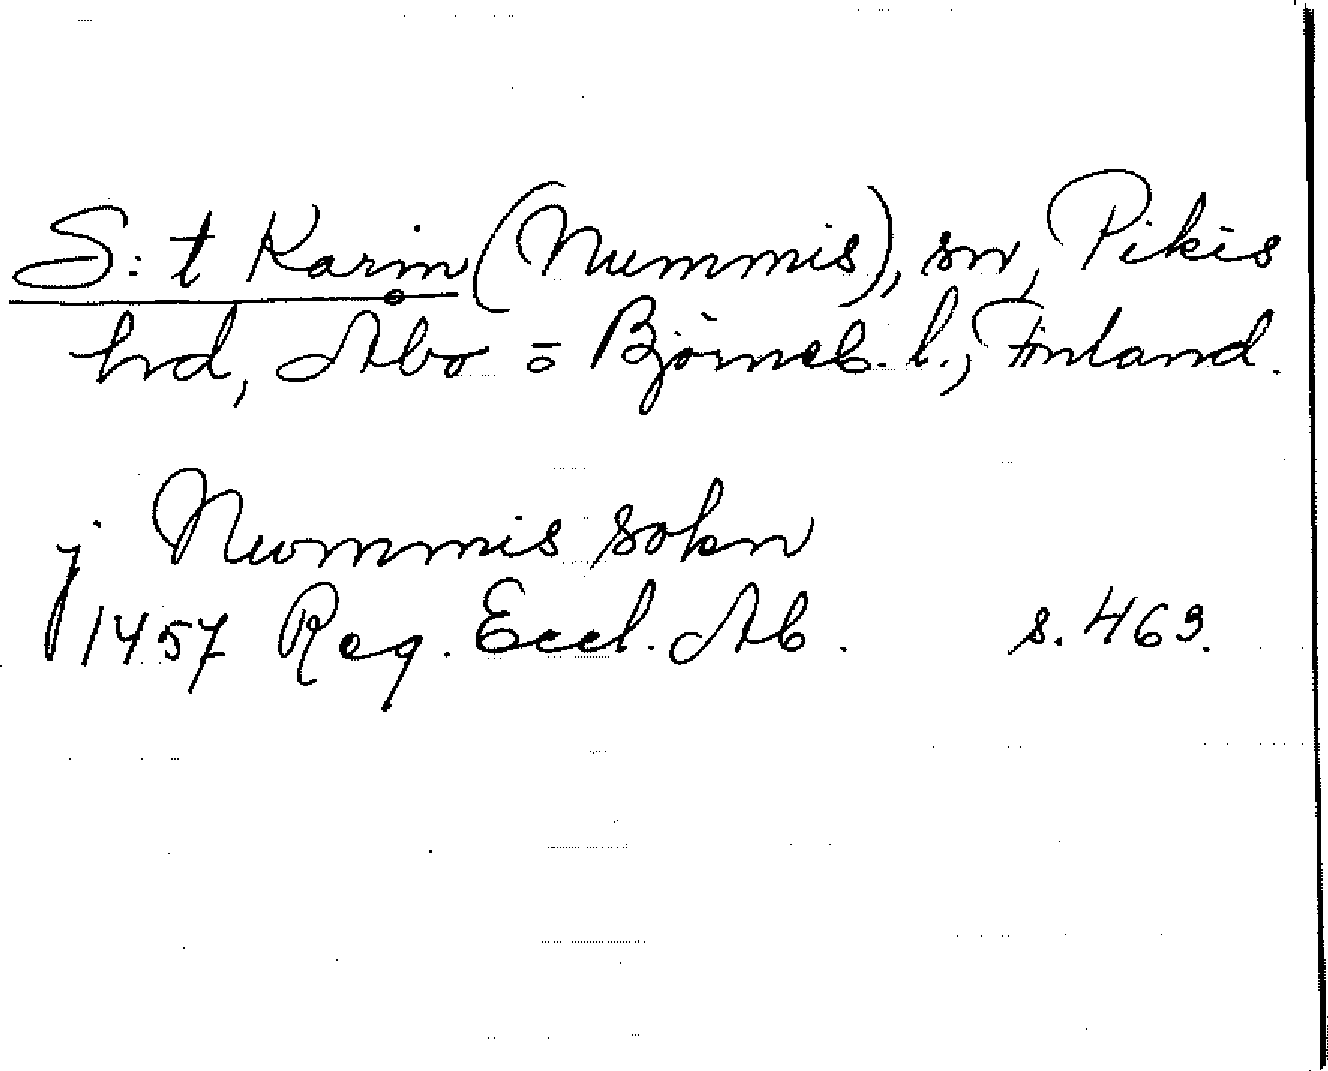 S:t Karin (Nummis), sn, Pikis
hd, Åbo o Björneb. l., Finland.
j Nwmmis sokn
1457 Reg. Eccl. Ab. s. 463.